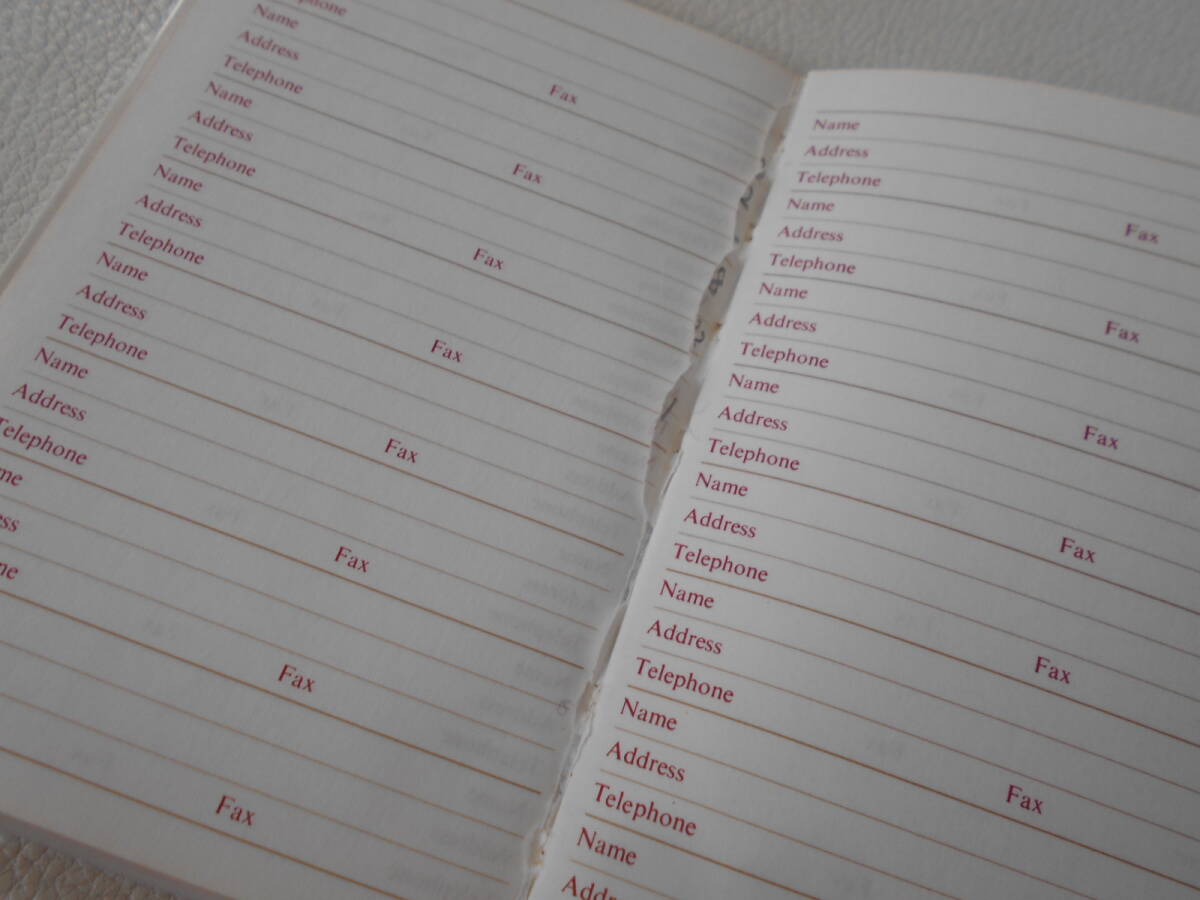 phone Fax
Name
Address
Telephone Fax
Name
Address
Telephone Fax
Name
Address
Telephone Fax
Name
Address
Telephone Fax
Name
Address
Telephone Fax
me
ess
ne Fax
Fax
Name
Address
Telephone Fax
Name
Address
Telephone Fax
Name
Address
Telephone Fax
Name
Address
Telephone Fax
Name
Address
Telephone Fax
Name
Address
Telephone Fax
Name
Address
Telephone
Name
Addr